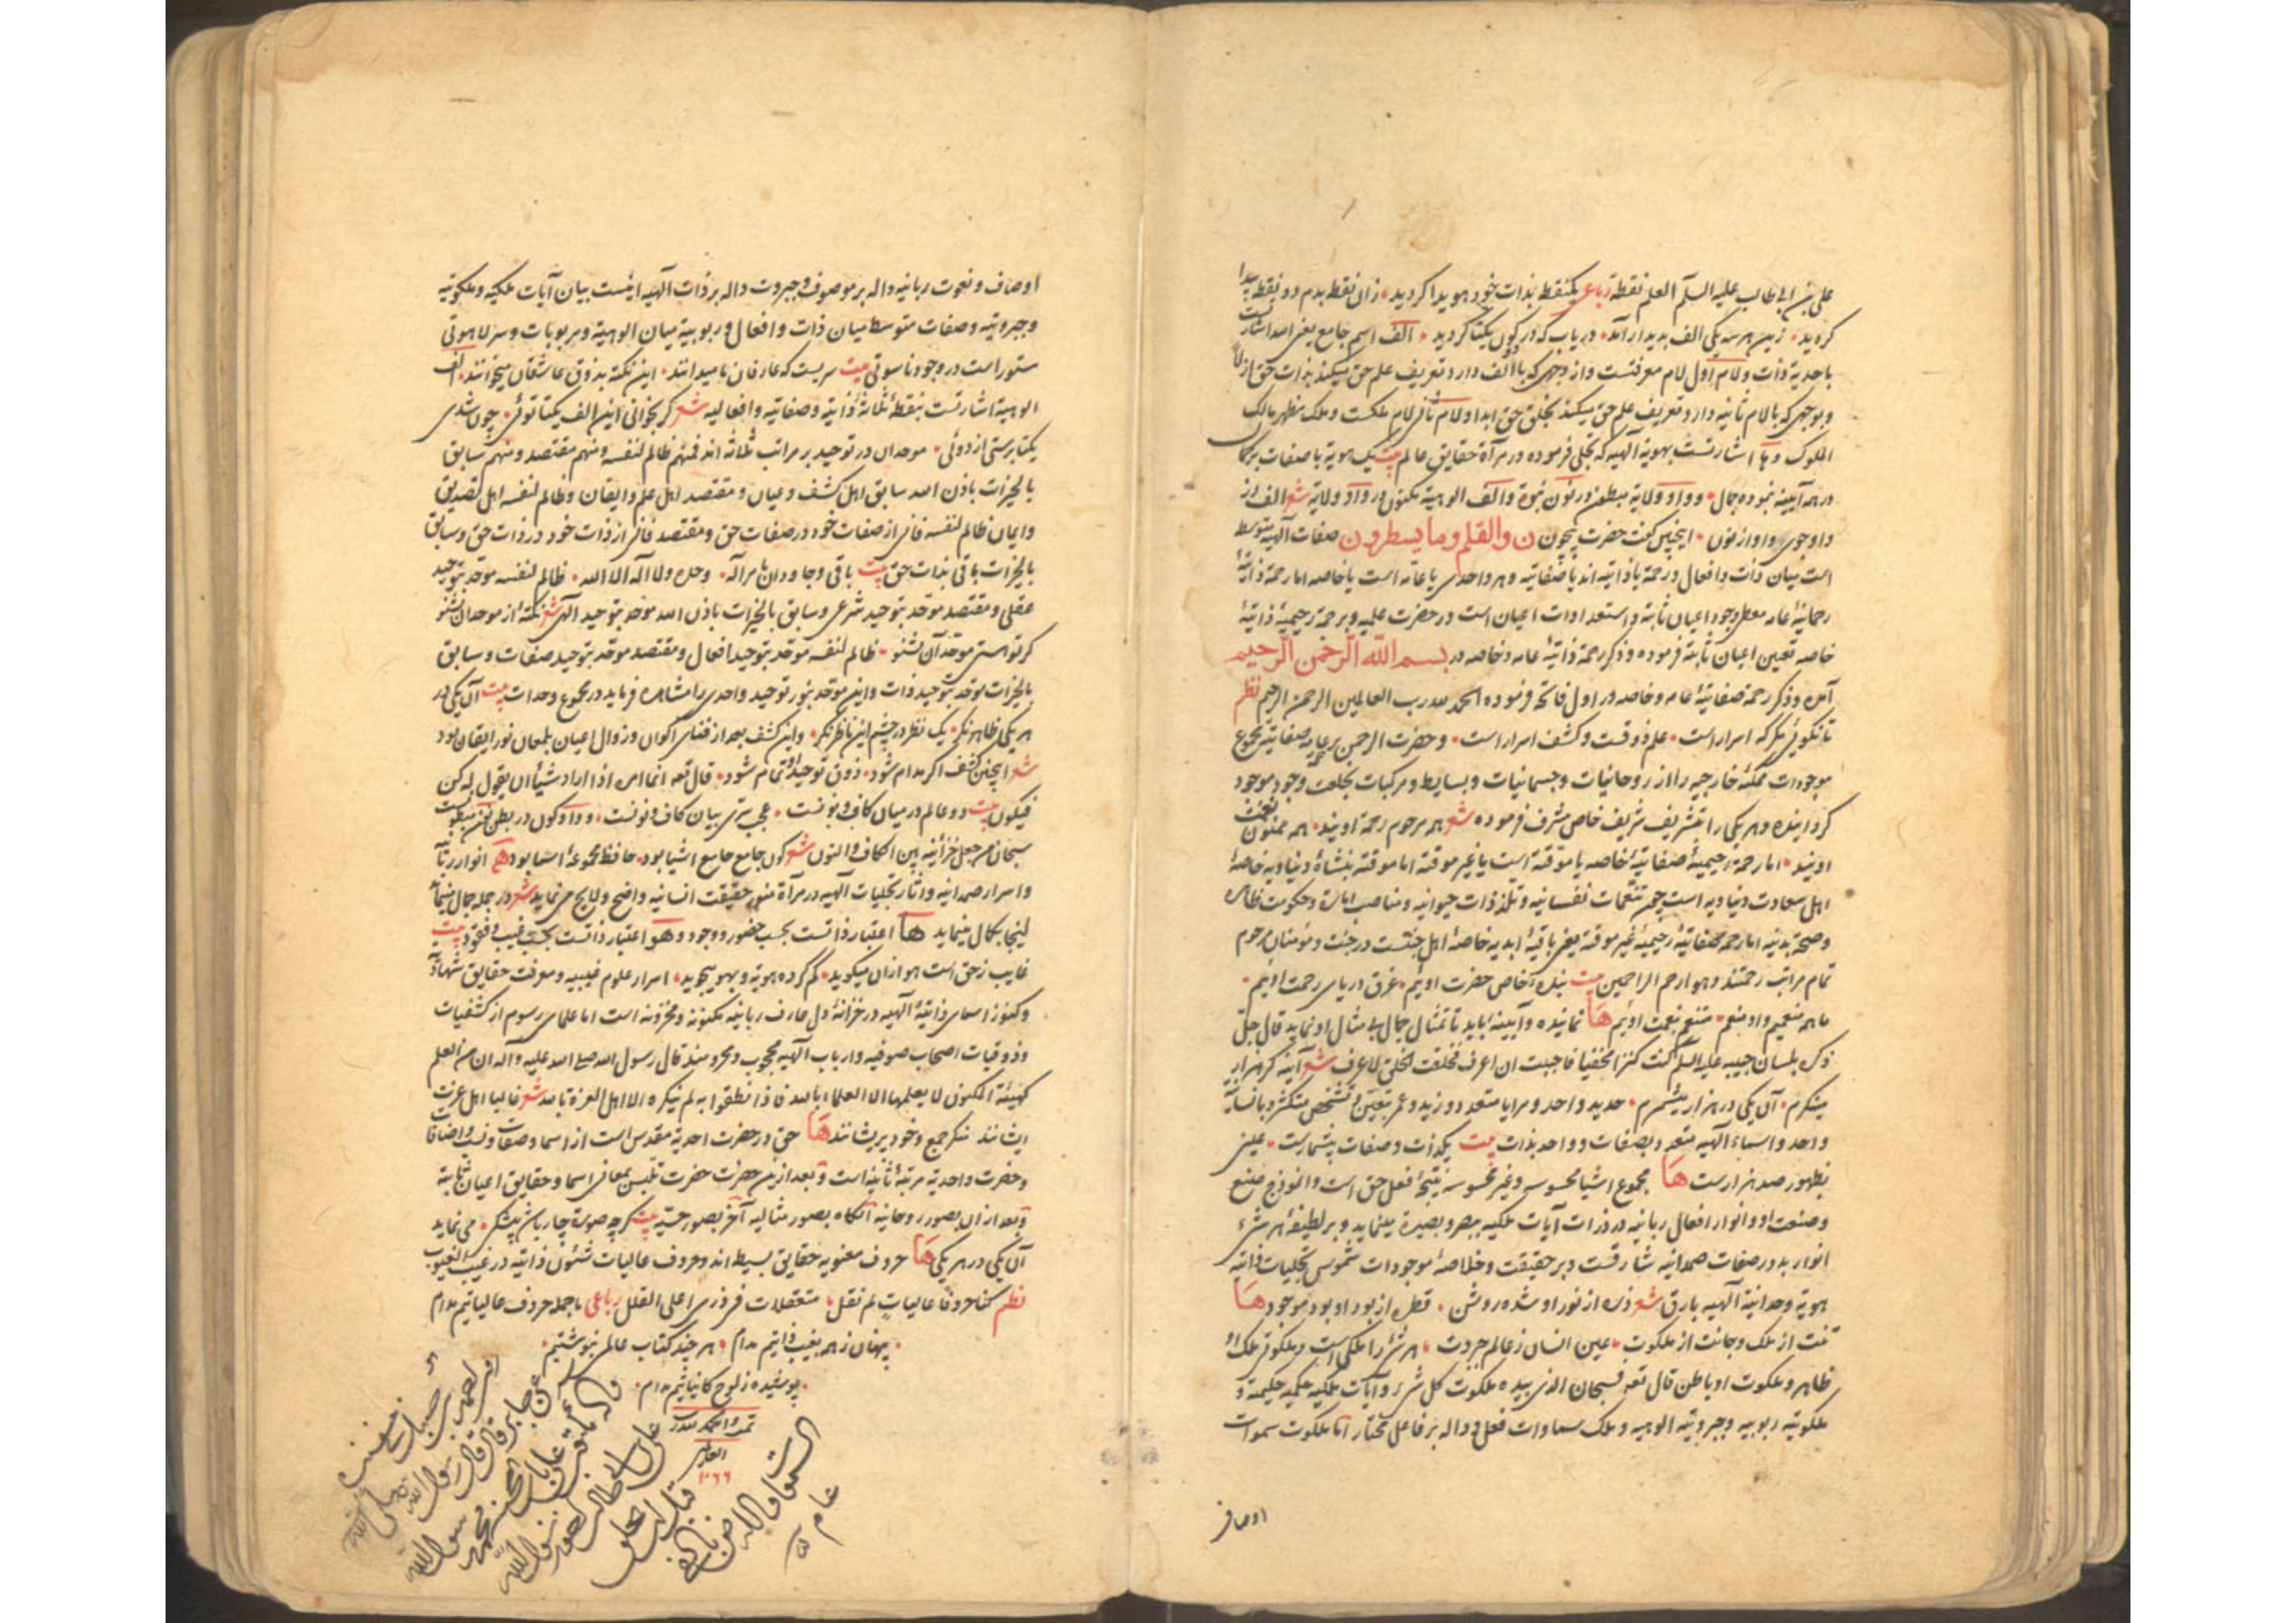 علی بن ابی طالب علیه السلم العلم نقطة رباعی یکنقطه بذات خود هویدا کردید زان نقطه بدم دو نقطه پیدا
کردید زین هر سه یکی الف بدیدار آمد دریاب که در کون یکتا کردید الف اسم جامع یعنی الله اشارتست
باحدیة ذات ولام اول لام معرفتست واز وجهی که با الف دارد تعریف علم حق میکند بذات حق ازلا
وبوجهی که بالام ثانیه دارد تعریف علم حق میکند بخلق حق ابدا ولام ثانی لام ملکست وملک مظهر مالک
الملوک وها اشارتست بهویة الهیه که تجلی فرموده در مرآة حقایق عالم بیت یک هویة با صفات بر کمال
در همه آیینه نموده جمال وواو ولایة ببطون در نون نبوة والف الوهیة مکنون در واو ولایة شعر الف از
واو جوی واو از نون اینچنین گفت حضرت بیچون ن والقلم وما یسطرون صفات الهیه متوسط
است میان ذات وافعال ورحمة یا ذاتیه اند یا صفاتیه وهر واحدی یا عامه است یا خاصه اما رحمة ذاتیهٔ
رحمانیهٔ عامه معطی وجود اعیان ثابته واستعدادات اعیان است در حضرت علمیه وبرحمة رحیمیهٔ ذاتیهٔ
خاصه تعین اعیان ثابته فرموده وذکر رحمة ذاتیهٔ عامه وخاصه در بسم الله الرحمن الرحیم
آمده وذکر رحمة صفاتیهٔ عامه وخاصه در اول فاتحه فرموده الحمد لله رب العالمین الرحمن الرحیم نظم
تا نکوئی مکر که اسرار است علم ذوقست وکشف اسرار است وحضرت الرحمن برحمة عامه صفاتیه مجموع
موجودات ممکنهٔ خارجیه را از روحانیات وجسمانیات وبسایط ومرکبات بخلعت وجود موجود
کردانیده وهر یکی را بتشریف شریف خاص مشرف فرموده شعر همه مرحوم رحمة اویند همه ممنون نعمت
اویند اما رحمة رحیمیهٔ صفاتیهٔ خاصه یا موقته است یا غیر موقته اما موقته بنشأة دنیاویه خاصهٔ
اهل سعادت دنیاویه است چون تنعمات نفسانیه وتلذذات حیوانیه ومناصب امارة وحکومت ظاهره
وصحة بدنیه اما رحمة صفاتیهٔ رحیمیهٔ غیر موقته یعنی باقیهٔ ابدیه خاصهٔ اهل جنتست در جنت ومومنان مرحوم
تمام مراتب رحمتند وهو ارحم الراحمین بیت بندهٔ خاص حضرت اوئیم غرق دریای رحمت اوئیم
ما همه منعمیم واو منعم متنعم بنعمت اوئیم ها نماینده وآیینه باید تا تمثال جمال بی مثال او نماید قال جل
ذکره بلسان حبیبه علیه السلم کنت کنزا مخفیا فاحببت ان اعرف فخلقت الخلق لاعرف شعر آینه کر هزار
مینکرم آن یکی در هزار میشمرم حدید واحد ومرایا متعدد وزید وعمر بتعین وتشخص متکثر وبانسانیه
واحد واسماء الهیه متعدد بصفات وواحد بذات بیت یک ذات وصفات بیشمارست عینی
بظهور صد هزارست ها مجموع اشیا محسوسه وغیر محسوسه نتیجهٔ فعل حق است وانموذج صنع
وصنعت او وانوار افعال ربانیه در ذرات آیات ملکیه ببصر وبصیرة مینماید وبر لطیفهٔ هر شیء
انوار بدور صفات صمدانیه شارقست وبر حقیقت وخلاصهٔ موجودات شموس تجلیات ذاتیه
هویة وحدانیة الهیه بارق شعر ذره از نور او شده روشن قطره از بود او بود موجود ها
تنت از ملک وجانت از ملکوت عین انسان ز عالم جبروت هر شیء را ملکی است وملکوتی ملک او
ظاهر وملکوت او باطن قال تعه فسبحان الذی بیده ملکوت کل شیء وآیات ملکیه حکیمه و
ملکوتیه ربوبیه وجبروتیه الوهیه وملک سماوات فعلی واله بر فاعل مختار اما ملکوت سموات
اوصاف
اوصاف ونعوت ربانیه داله بر موصوف وجبروت داله بر ذات الهیه اینست بیان آیات ملکیه وملکوتیه
وجبروتیه وصفات متوسط میان ذات وافعال وربوبیة میان الوهیة ومربوبات وسر لاهوتی
ستور است در وجود ناسوتی بیت سریست که عارفان نامیدانند این نکته بذوق عاشقان میخوانند الف
الوهیة اشارتست بنقطهٔ ثلاثهٔ ذاتیه وصفاتیه وافعالیه شعر کر بخوانی این الف یکتا توئی چون شدی
یکتا برستی از دوئی موحدان در توحید بر مراتب ثلاثه اند فمنهم ظالم لنفسه ومنهم مقتصد ومنهم سابق
بالخیرات باذن الله سابق اهل کشف وعیان ومقتصد اهل علم وایقان وظالم لنفسه اهل تصدیق
وایمان ظالم لنفسه فانی از صفات خود در صفات حق ومقتصد فانی از ذات خود در ذات حق وسابق
بالخیرات باقی بذات حق بیت باقی وجاودان نامراله وحده ولا اله الا الله ظالم لنفسه موحد بتوحید
عقلی ومقتصد موحد بتوحید شرعی وسابق بالخیرات باذن الله موحد بتوحید الهی شعر نکتهٔ از موحدان بشنو
کر تو هستی موحد آن بشنو ظالم لنفسه موحد بتوحید افعال ومقتصد موحد بتوحید صفات وسابق
بالخیرات موحد بتوحید ذات واین موحد بنور توحید واحدی را مشاهده فرماید در مجموع وحدات بیت آن یکی در
هر یکی ظاهر نکر یک نظر در چشم این ناظر نکر واین کشف بعد از فنای اکوان وزوال اعیان بلمعان نور ایقان بود
شعر اینچنین کشف اکر مدام شود ذوق توحید او تمام شود قال تعه انما امره اذا اراد شیئا ان یقول له کن
فیکون بیت دو عالم در میان کاف ونونست عجب سری بیان کاف ونونست وواو کون در بطن کن مبطونست
سبحان من جعل خزائنه بین الکاف والنون شعر کون جامع جامع اشیا بود حافظ مجموعهٔ اسما بود ها انوار ربانیه
واسرار صمدانیه وآثار تجلیات الهیه در مرآة منور حقیقت انسانیه واضح ولایح می نماید شعر در جمله جمال مینماید
لیکنجا بکمال مینماید ها اعتبار ذاتست بحسب حضور ووجود وهو اعتبار ذاتست بحسب غیب وفقود بیت
غایب ز حق است هو ازان میکوید کم کرده هویة وبهو میجوید اسرار علوم غیبیه ومعرفت حقایق شهادیه
وکنوز اسمای ذاتیهٔ الهیه در خزانهٔ دل عارف ربانیه مکنونه ومخزونه است اما علمای رسوم از کشفیات
وذوقیات اصحاب صوفیه وارباب الهیه محجوب ومحرومند قال رسول الله صلی الله علیه وآله ان من العلم
کهیئة المکنون لا یعلمها الا العلماء بالله فاذا نطقوا به لم ینکره الا اهل الغرة بالله شعر غالبا اهل عزت
ایشانند منکر جمع وخود پریشانند ها حق در حضرت احدیة مقدس است از اسما وصفات ونسب واضافات
وحضرت واحدیة مرتبهٔ ثانیه است وبعد ازین حضرت حضرت تلبس بمعانی اسما وحقایق اعیان ثابته
وبعد ازان بصور روحانیه آنکاه بصور مثالیه آخر بصور حسیه بیت کر چه صورة چار باشد پیشکی می نماید
آن یکی در هر یکی ها حروف معنویه حقایق بسیط اند وحروف عالیات شئون ذاتیه در غیب الغیوب
نظم کنا حروفا عالیات لم نقل متعلقات فی ذری اعلی القلل رباعی ما جمله حروف عالیاتیم مدام
پنهان ز همه بغیب ذاتیم مدام هر چند کتاب عالمی بنوشتیم
پوشیده ز لوح کائناتیم مدام
تمت والحمد لله رب
العالمین
۱۰۶۶
عن جابر قال قال رسول الله صلی الله
علی باب الجنة محمد رسول الله
علی بن ابی طالب اخو رسول الله
قبل ان یخلق
السموات والارض بالفی
عام